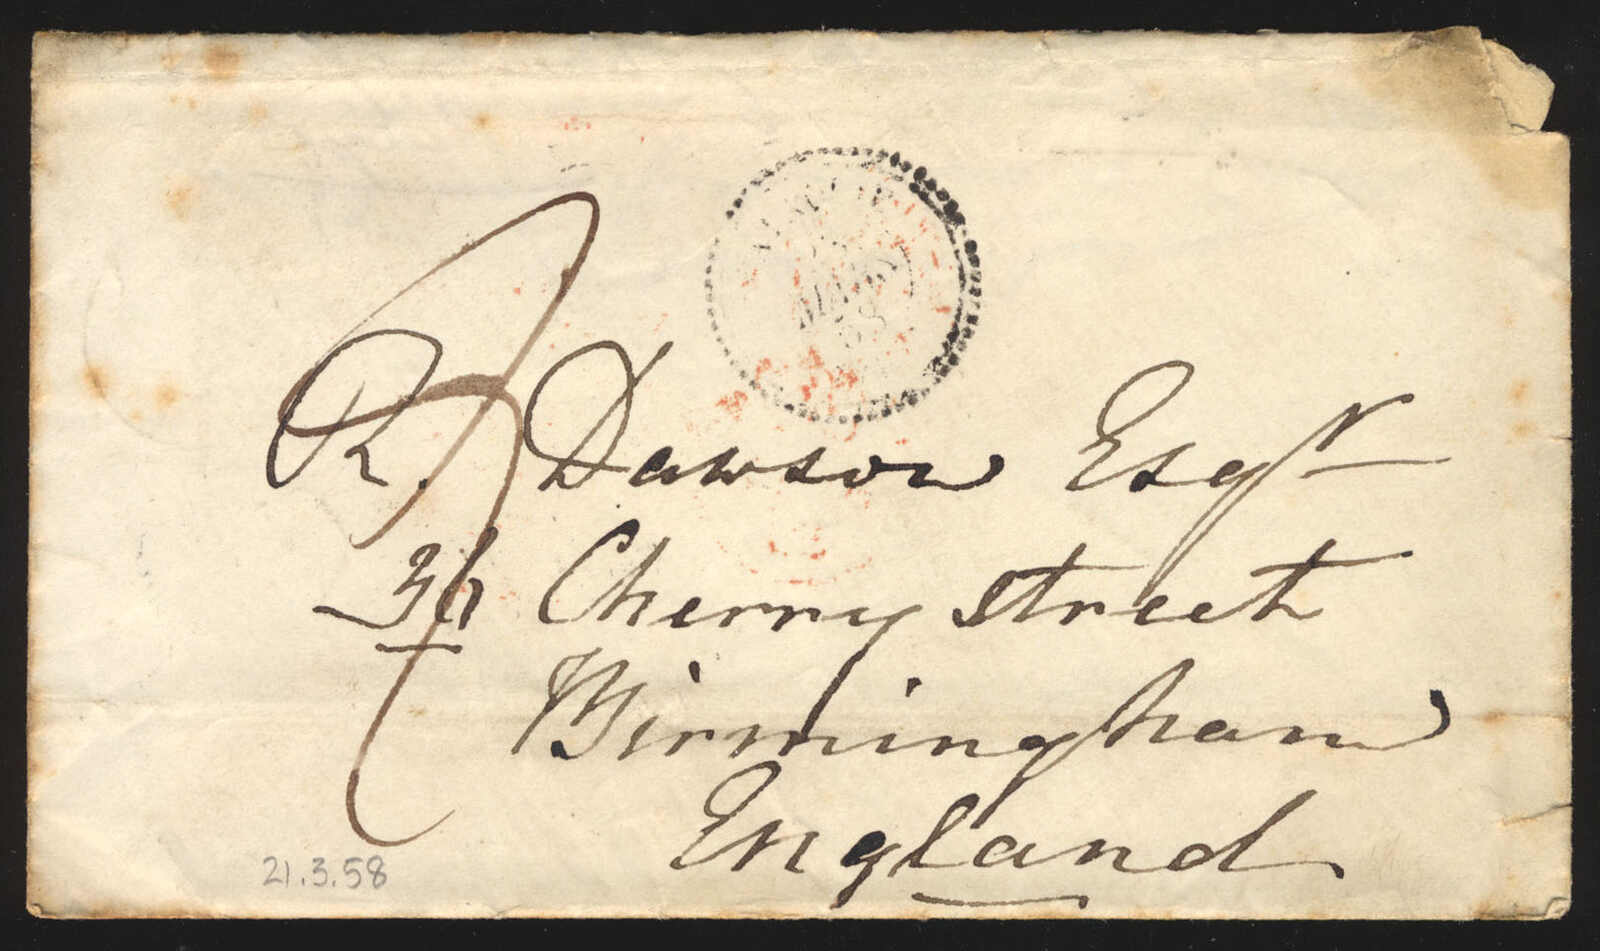 R. Dawson Esqr
36 Cherry Street
Birmingham
England
21.3.58